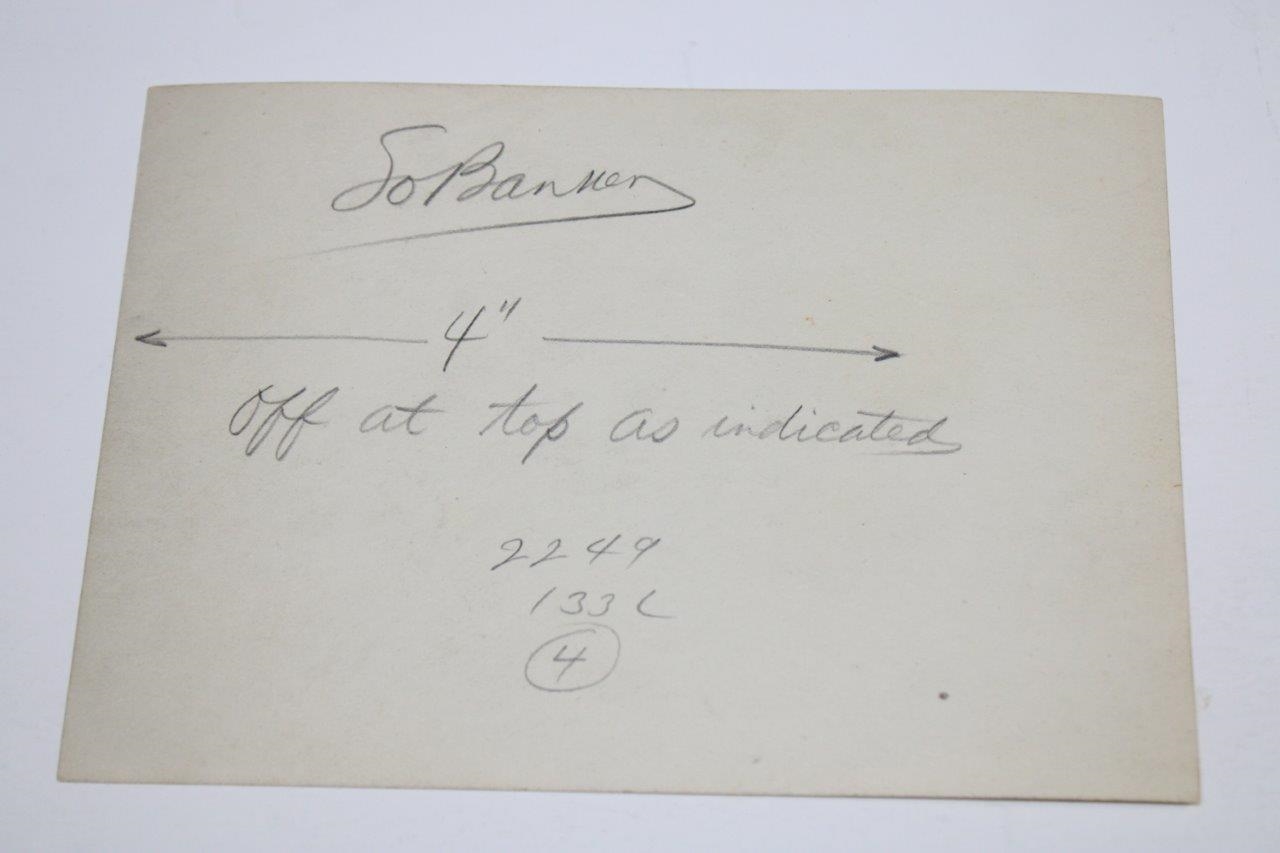 So Banner
4"
Off at top as indicated
2249
133L
4